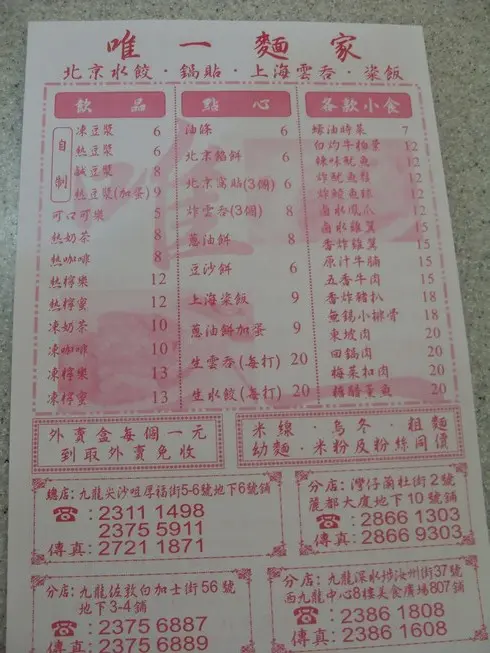 唯一麵家
北京水餃·鍋貼·上海雲吞·粢飯
飲品
自制
凍豆漿 6
熱豆漿 6
鹹豆漿 8
熱豆漿(加蛋) 9
可口可樂 5
熱奶茶 8
熱咖啡 8
熱檸樂 12
熱檸蜜 12
凍奶茶 10
凍咖啡 10
凍檸樂 13
凍檸蜜 13
點心
油條 6
北京餡餅 6
北京窩貼(3個) 6
炸雲吞(3個) 8
蔥油餅 8
豆沙餅 6
上海粢飯 9
蔥油餅加蛋 9
生雲吞(每打) 20
生水餃(每打) 20
各款小食
蠔油時菜 7
白灼牛柏葉 12
辣味魷魚 12
炸魷魚鬚 12
炸鯪魚球 12
鹵水鳳爪 12
鹵水雞翼 15
香炸雞翼 15
原汁牛腩 15
五香牛肉 15
香炸豬扒 18
無錫小排骨 18
東坡肉 20
回鍋肉 20
梅菜扣肉 20
糖醋熏魚 20
外賣盒每個一元
到取外賣免收
米線·烏冬·粗麵
幼麵·米粉及粉絲同價
總店:九龍尖沙咀厚福街5-6號地下6號舖
☎:2311 1498
2375 5911
傳真:2721 1871
分店:灣仔蘭杜街2號
麗都大廈地下10號舖
☎:2866 1303
傳真:2866 9303
分店:九龍佐敦白加士街56號
地下3-4舖
☎:2375 6887
傳真:2375 6889
分店:九龍深水埗汝州街37號
西九龍中心8樓美食廣場807舖
☎:2386 1808
傳真:2386 1608